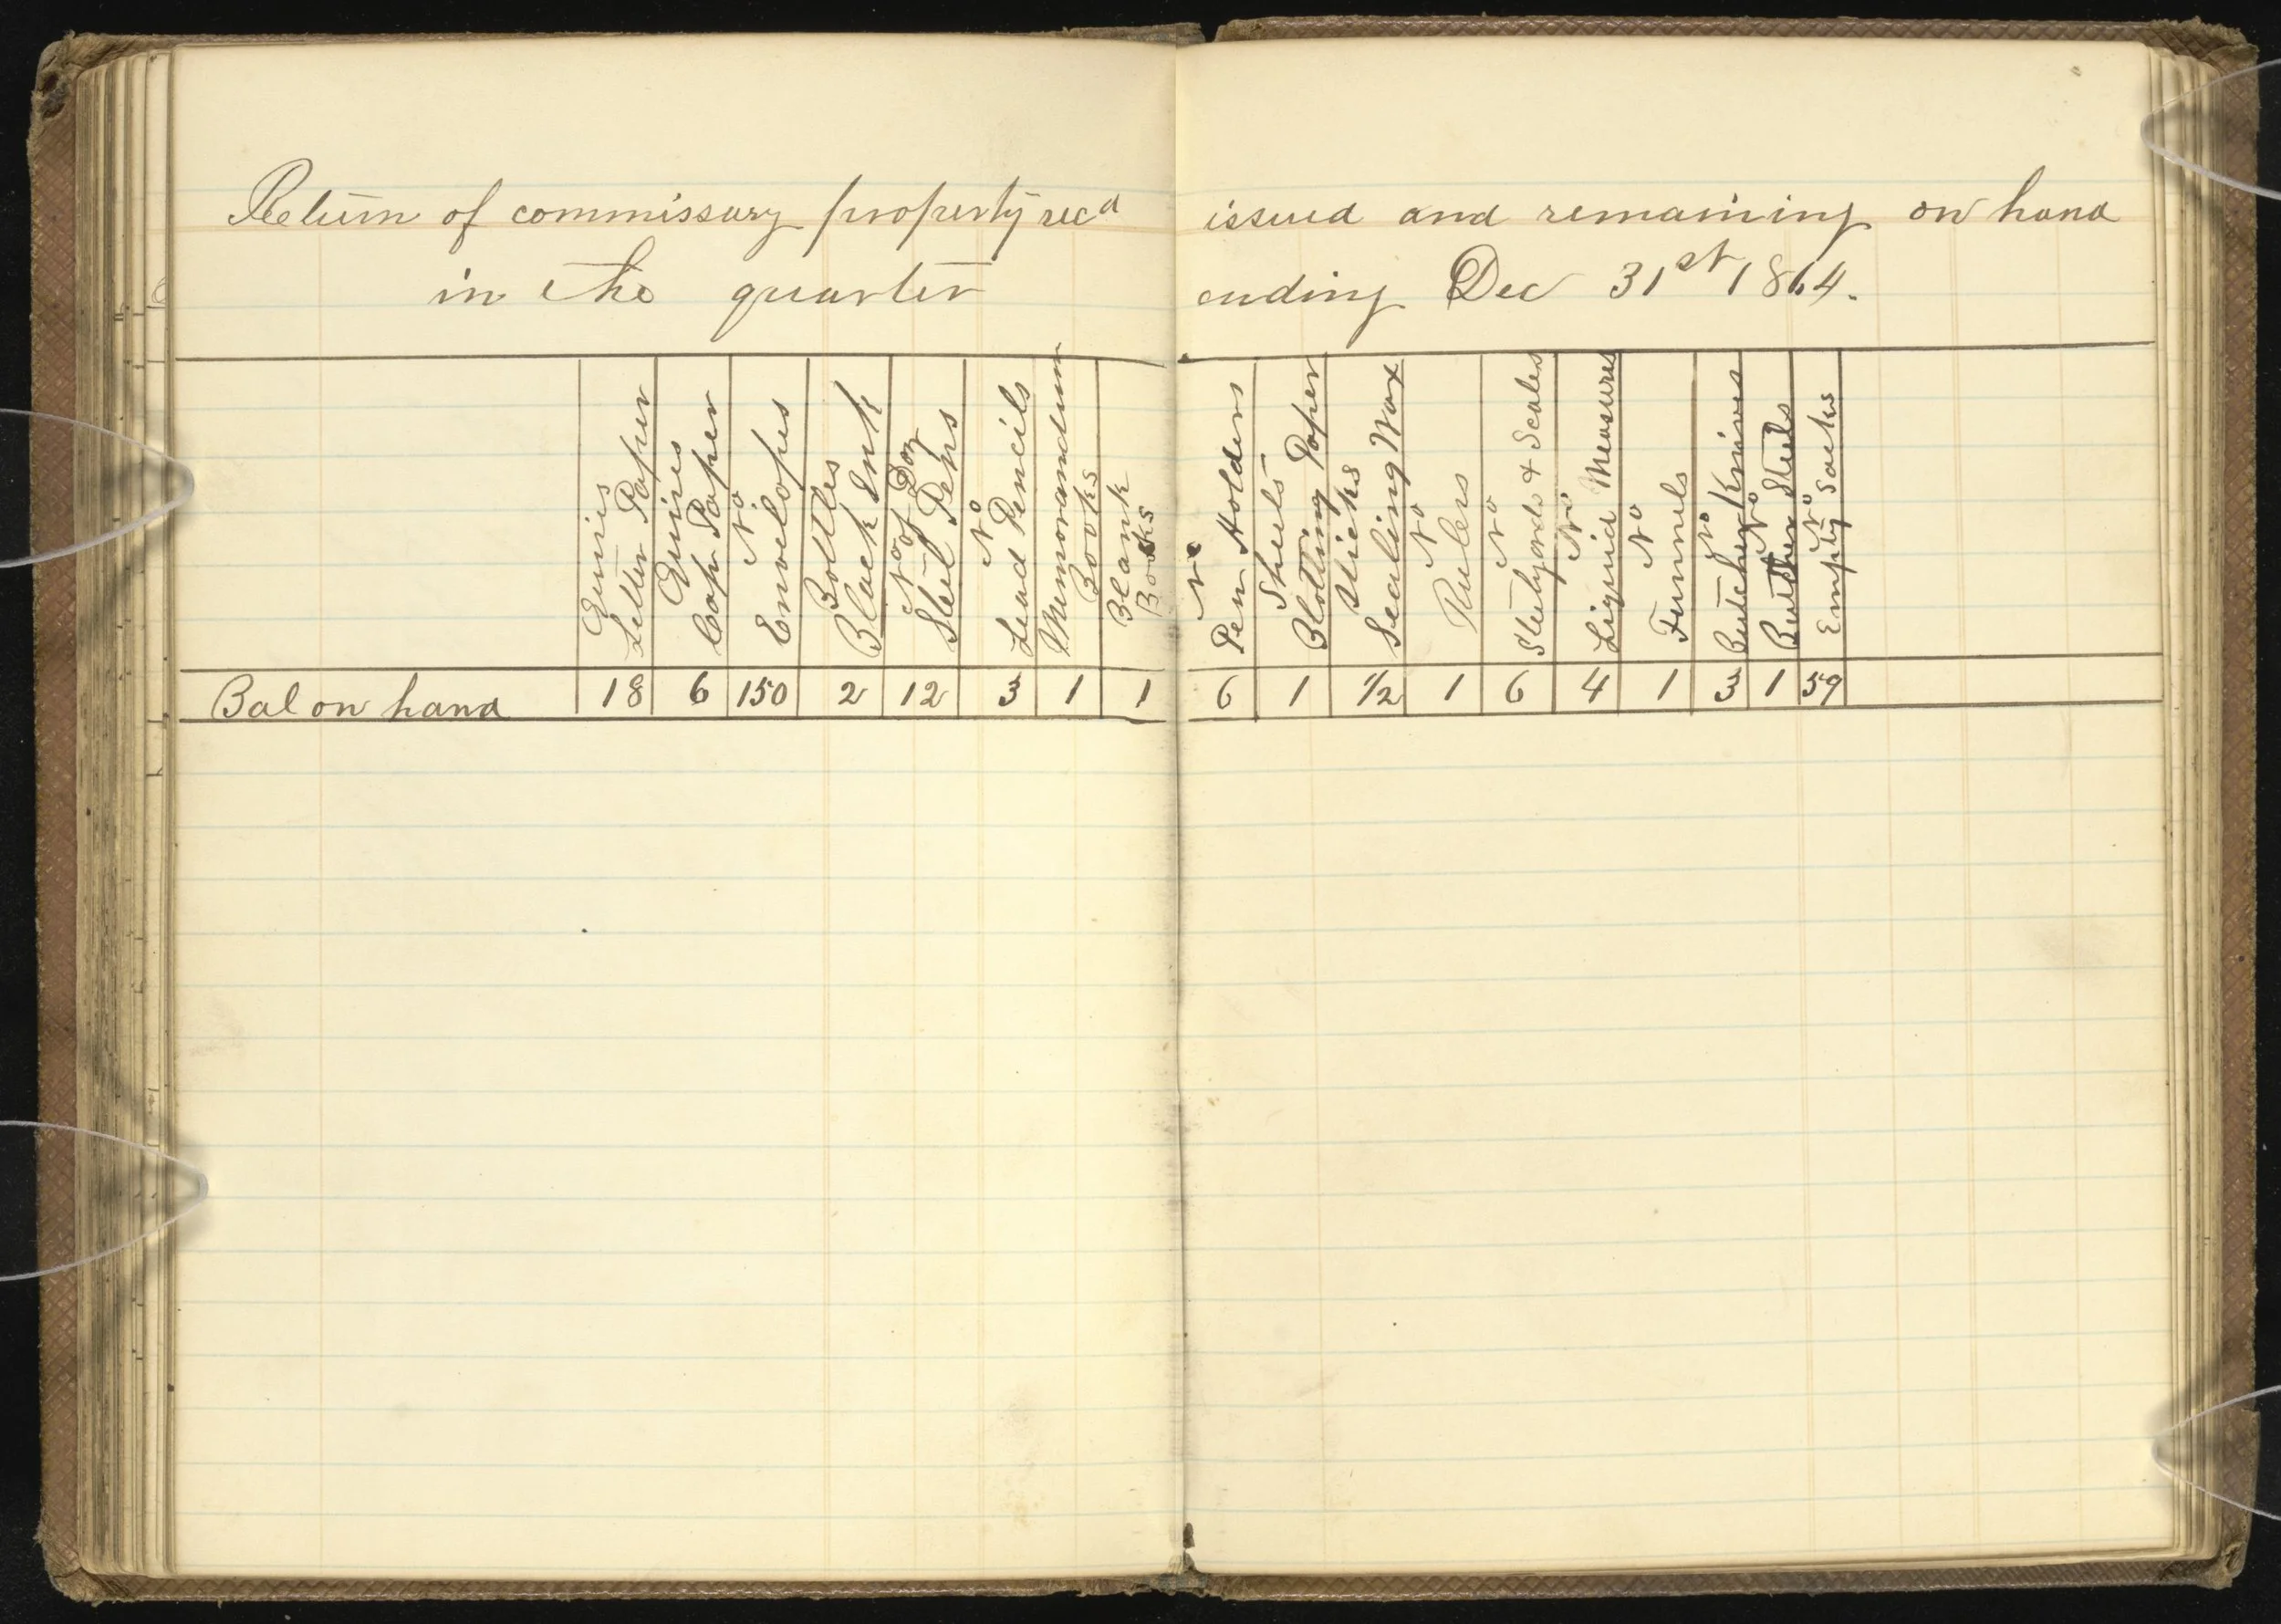 Return of commissary property recd issued and remaining on hand
in the quarter ending Dec 31st 1864.
Quires Letter Paper
Quires Cap Paper
No Envelopes
Bottles Black Ink
No of Doz Steel Pens
No Lead Pencils
Memorandum Books
Blank Books
No Pen Holders
Sheets Blotting Paper
Sticks Sealing Wax
No Rulers
No Steelyards & Scales
No Liquid Measures
No Funnels
No Butcher Knives
No Butcher Steels
No Empty Sacks
Bal on hand 18 6 150 2 12 3 1 1 6 1 1/2 1 6 4 1 3 1 59